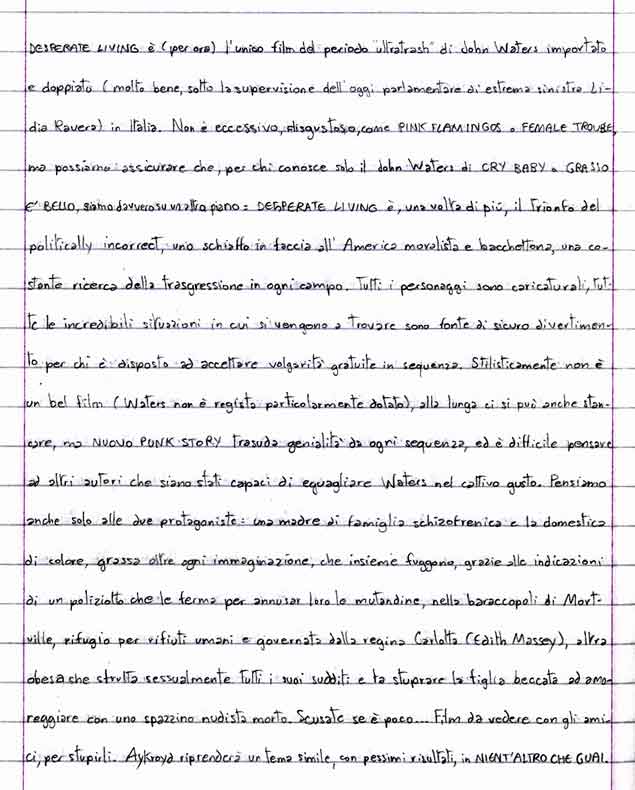 DESPERATE LIVING è (per ora) l'unico film del periodo "ultratrash" di John Waters importato
e doppiato (molto bene, sotto la supervisione dell'oggi parlamentare di estrema sinistra Li-
dia Ravera) in Italia. Non è eccessivo, disgustoso, come PINK FLAMINGOS o FEMALE TROUBE,
ma possiamo assicurare che, per chi conosce solo il John Waters di CRY BABY o GRASSO
E' BELLO, siamo davvero su un altro piano: DESPERATE LIVING è, una volta di più, il trionfo del
politically incorrect, uno schiaffo in faccia all'America moralista e bacchettona, una co-
stante ricerca della trasgressione in ogni campo. Tutti i personaggi sono caricaturali, tut-
te le incredibili situazioni in cui si vengono a trovare sono fonte di sicuro divertimen-
to per chi è disposto ad accettare volgarità gratuite in sequenza. Stilisticamente non è
un bel film (Waters non è regista particolarmente dotato), alla lunga ci si può anche stan-
care, ma NUOVO PUNK STORY trasuda genialità da ogni sequenza, ed è difficile pensare
ad altri autori che siano stati capaci di eguagliare Waters nel cattivo gusto. Pensiamo
anche solo alle due protagoniste: una madre di famiglia schizofrenica e la domestica
di colore, grassa oltre ogni immaginazione, che insieme fuggono, grazie alle indicazioni
di un poliziotto che le ferma per annusar loro le mutandine, nella baraccopoli di Mort-
ville, rifugio per rifiuti umani e governata dalla regina Carlotta (Edith Massey), altra
obesa che sfrutta sessualmente tutti i suoi sudditi e fa stuprare la figlia beccata ad amo-
reggiare con uno spazzino nudista morto. Scusate se è poco... Film da vedere con gli ami-
ci, per stupirli. Aykroyd riprenderà un tema simile, con pessimi risultati, in NIENT'ALTRO CHE GUAI.